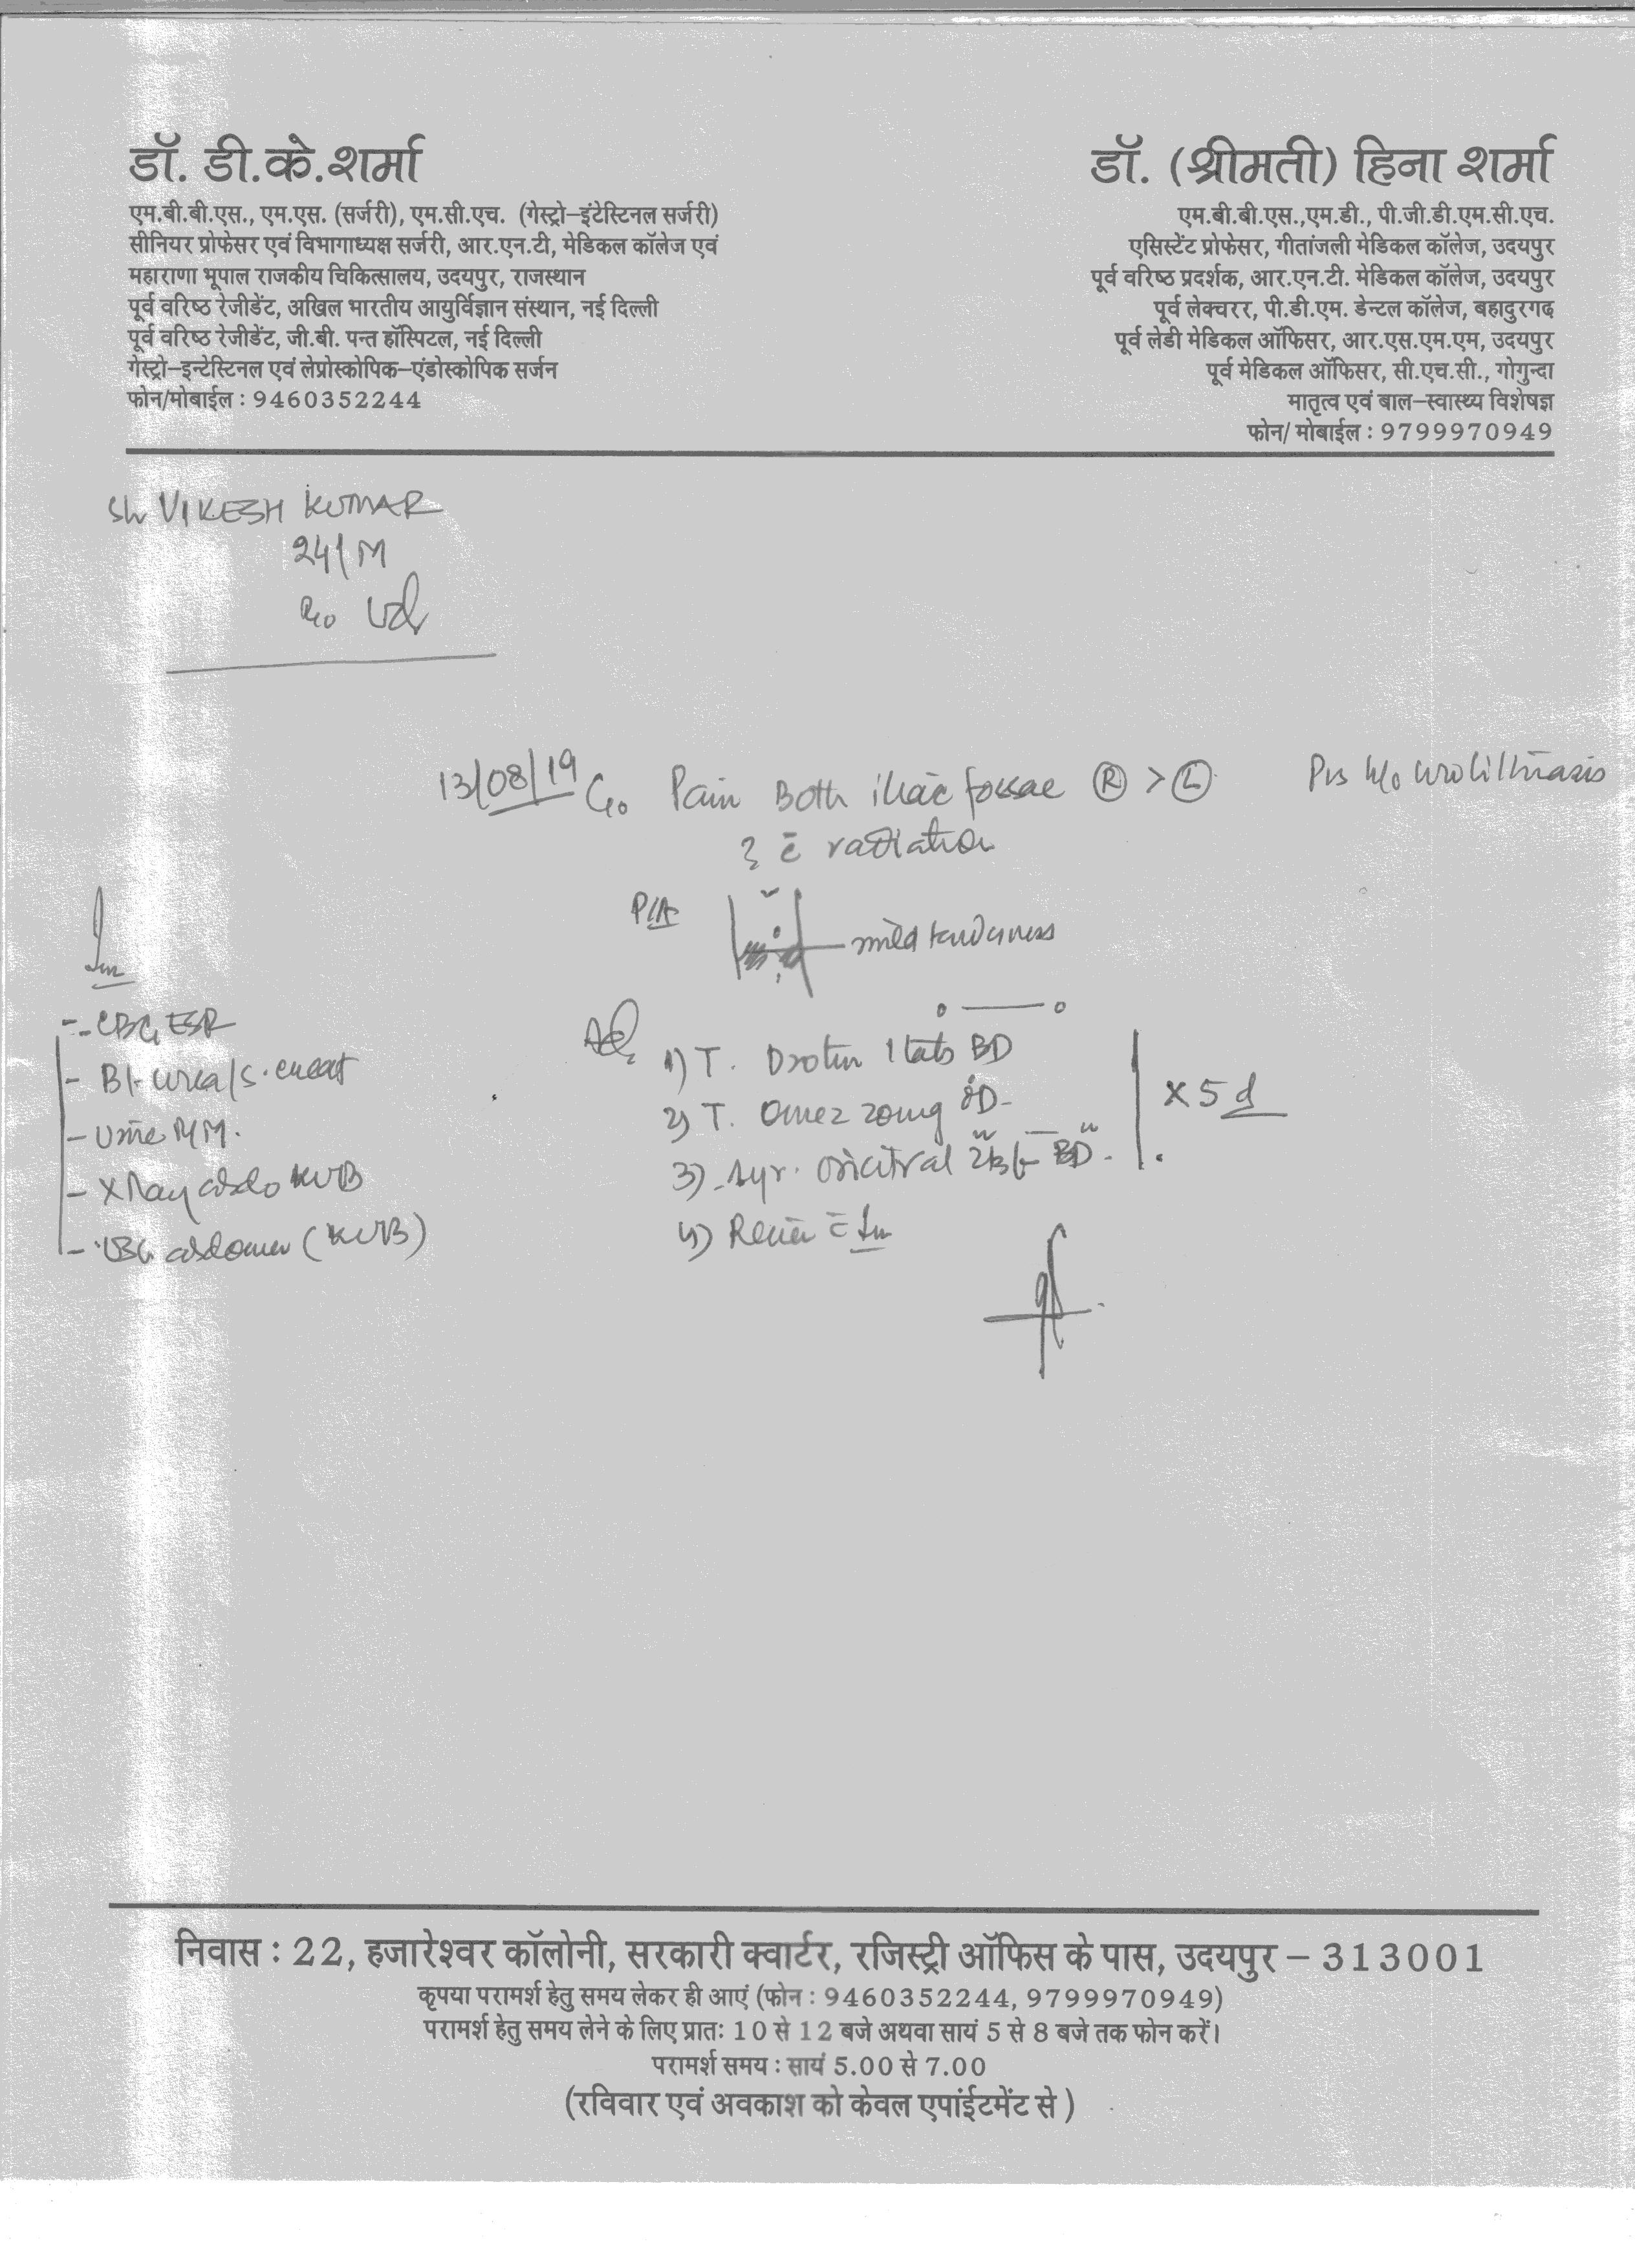 डॉ. डी.के.शर्मा
एम.बी.बी.एस., एम.एस. (सर्जरी), एम.सी.एच. (गेस्ट्रो-इंटेस्टिनल सर्जरी)
सीनियर प्रोफेसर एवं विभागाध्यक्ष सर्जरी, आर.एन.टी, मेडिकल कॉलेज एवं
महाराणा भूपाल राजकीय चिकित्सालय, उदयपुर, राजस्थान
पूर्व वरिष्ठ रेजीडेंट, अखिल भारतीय आयुर्विज्ञान संस्थान, नई दिल्ली
पूर्व वरिष्ठ रेजीडेंट, जी.बी. पन्त हॉस्पिटल, नई दिल्ली
गेस्ट्रो-इन्टेस्टिनल एवं लेप्रोस्कोपिक-एंडोस्कोपिक सर्जन
फोन/मोबाईल : 9460352244
डॉ. (श्रीमती) हिना शर्मा
एम.बी.बी.एस.,एम.डी., पी.जी.डी.एम.सी.एच.
एसिस्टेंट प्रोफेसर, गीतांजली मेडिकल कॉलेज, उदयपुर
पूर्व वरिष्ठ प्रदर्शक, आर.एन.टी. मेडिकल कॉलेज, उदयपुर
पूर्व लेक्चरर, पी.डी.एम. डेन्टल कॉलेज, बहादुरगढ
पूर्व लेडी मेडिकल ऑफिसर, आर.एस.एम.एम, उदयपुर
पूर्व मेडिकल ऑफिसर, सी.एच.सी., गोगुन्दा
मातृत्व एवं बाल-स्वास्थ्य विशेषज्ञ
फोन/ मोबाईल : 9799970949
Sh VIKESH KUMAR
24/M
R/o Ud
13/08/19 C/o Pain Both iliac fossae Ⓡ > Ⓛ H/o urolithiasis
c̄ radiation
P/A
mild tenderness
Inv
- CBC, ESR
- Bl. urea/S. creat
- Urine R/M.
- X Ray abdo KUB
- USG abdomen (KUB)
Adv
1) T. Drotin 1 tab BD
2) T. Omez 20mg OD
3) Syr. Oricitral 2tsf BD.
x 5 d
4) Review c̄ Inv
निवास : 22, हजारेश्वर कॉलोनी, सरकारी क्वार्टर, रजिस्ट्री ऑफिस के पास, उदयपुर – 313001
कृपया परामर्श हेतु समय लेकर ही आएं (फोन : 9460352244, 9799970949)
परामर्श हेतु समय लेने के लिए प्रातः 10 से 12 बजे अथवा सायं 5 से 8 बजे तक फोन करें।
परामर्श समय : सायं 5.00 से 7.00
(रविवार एवं अवकाश को केवल एपांईटमेंट से )